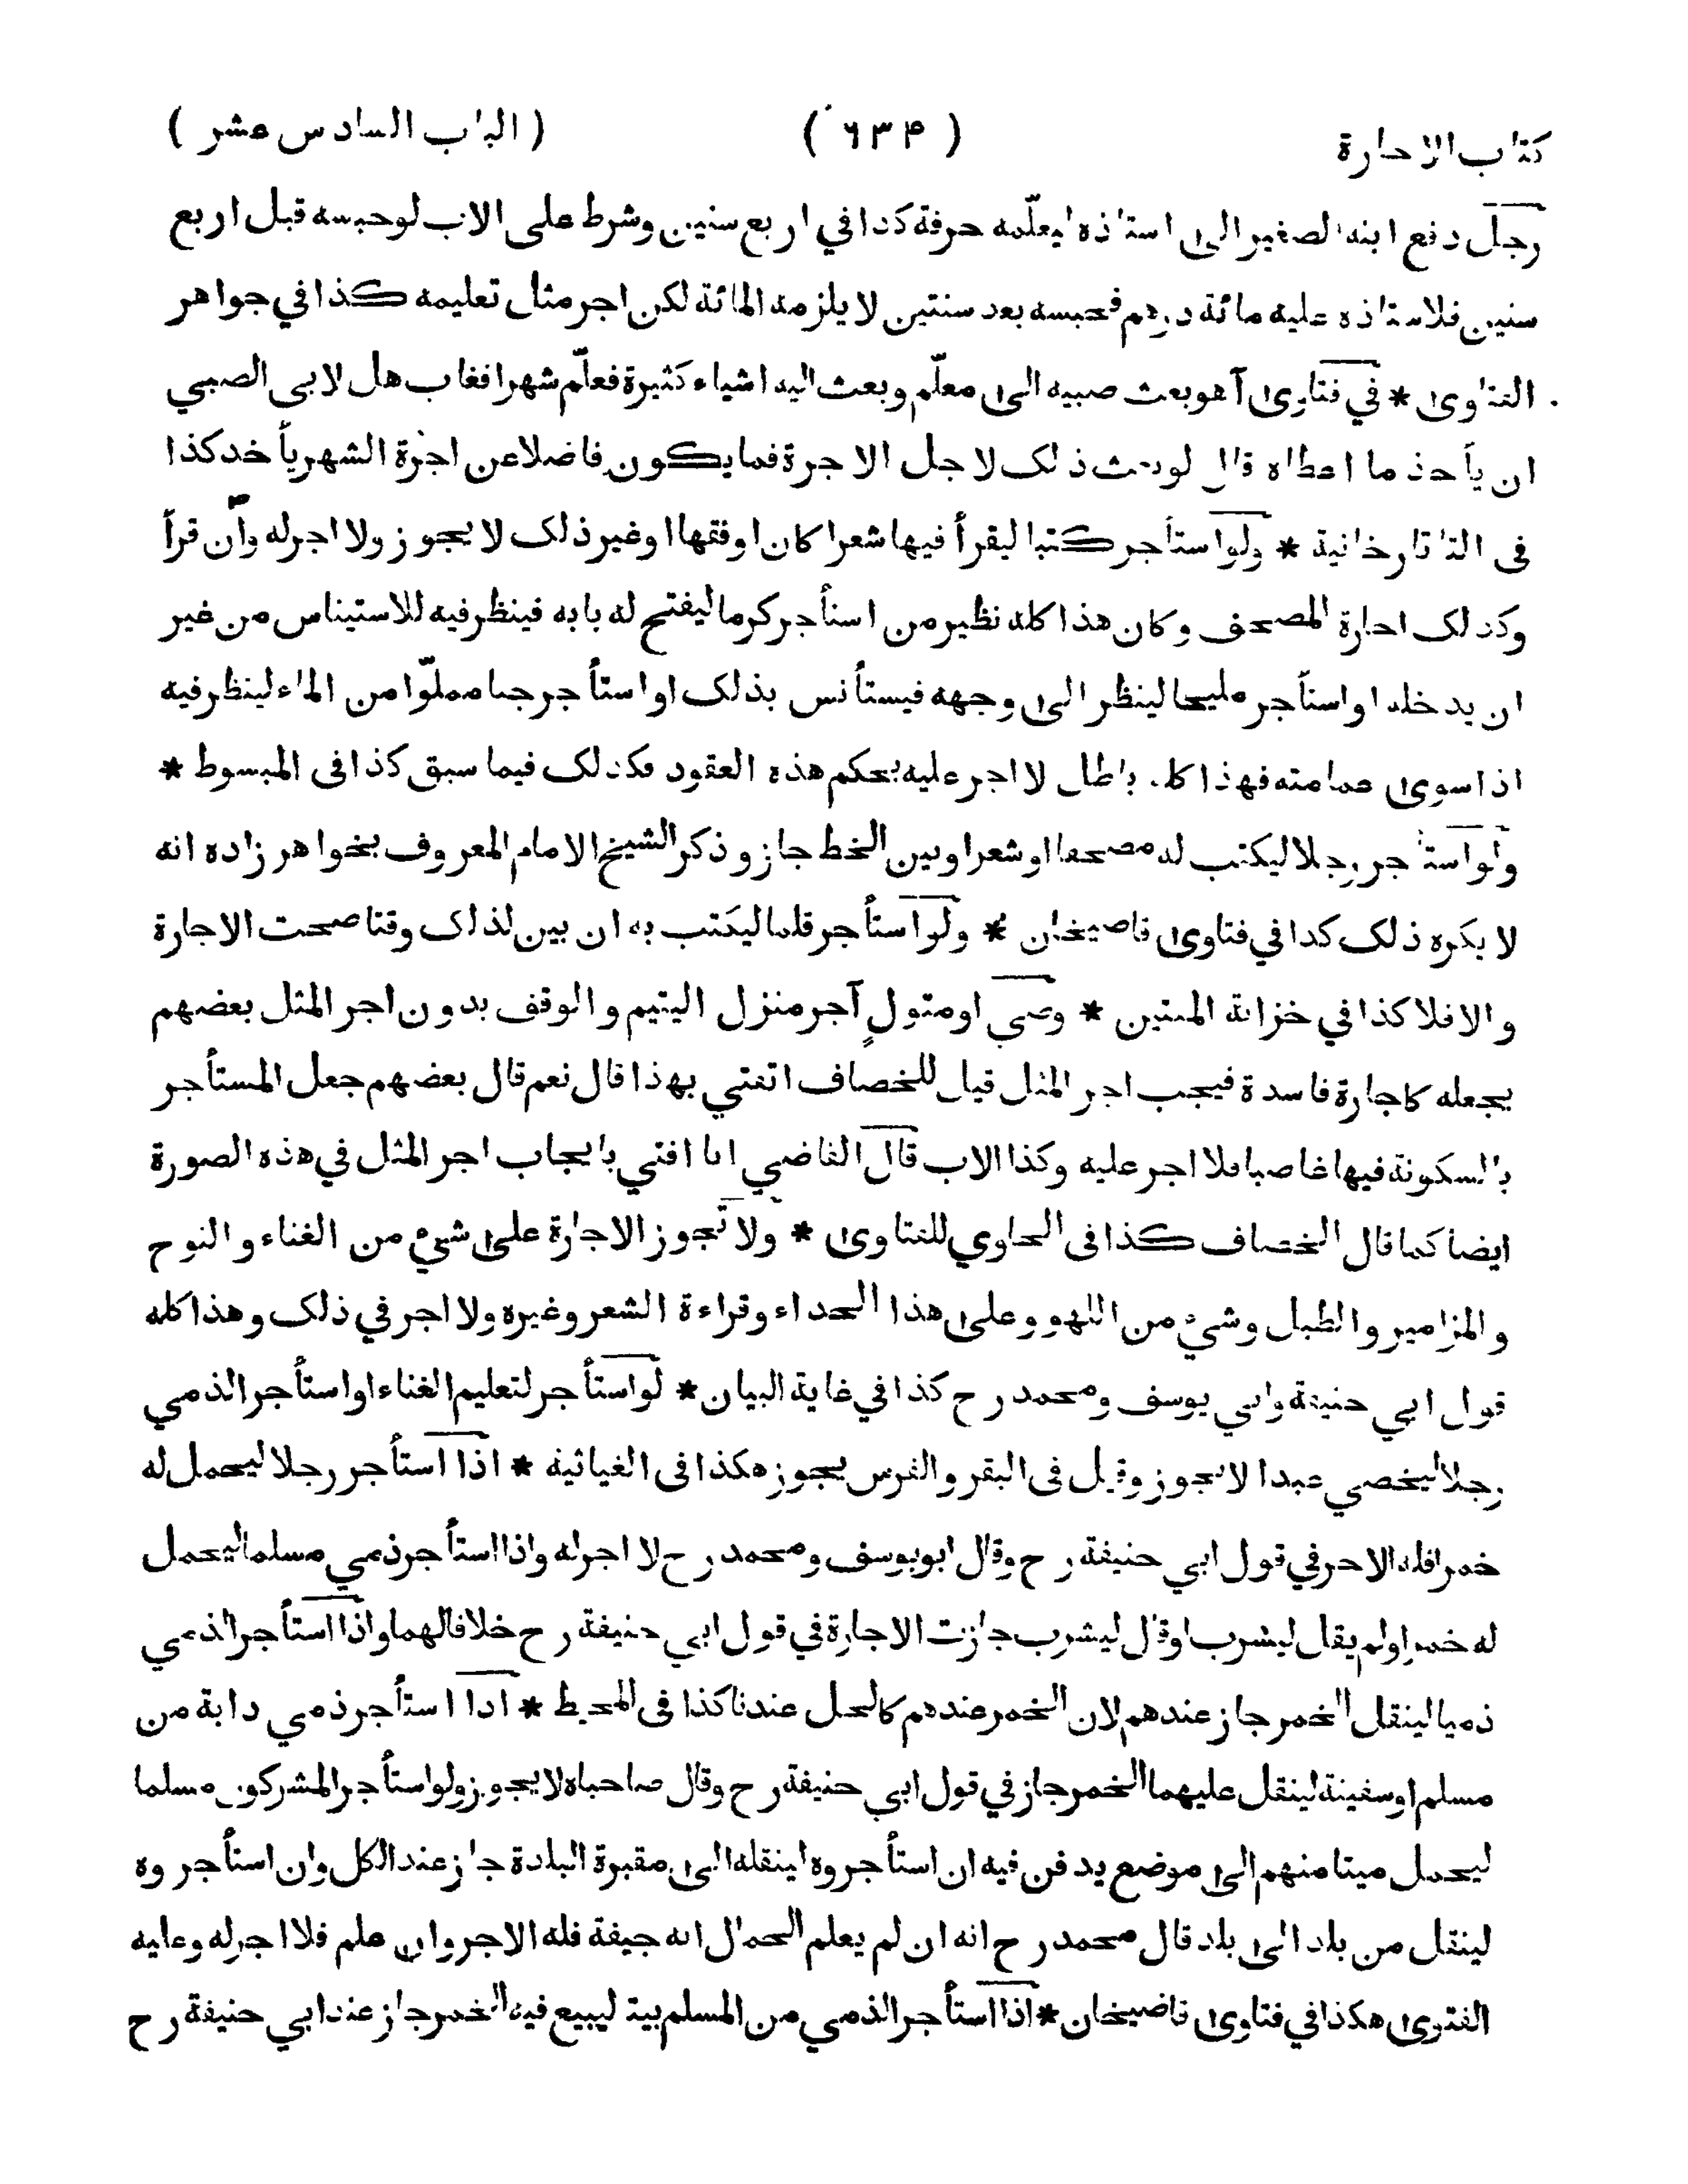 كتاب الاجارة ( ٦٣۴ ) ( الباب السادس عشر )
رجل دفع ابنه الصغير الى استاذه ليعلّمه حرفة كذا في اربع سنين وشرط على الاب لوحبسه قبل اربع
سنين فلاستاذه عليه مائة درهم فحبسه بعد سنتين لا يلزمه المائة لكن اجر مثل تعليمه كذا في جواهر
الفتاوى * في فتاوى آهو بعث صبيه الى معلّم وبعث اليه اشياء كثيرة فعلّم شهرا فغاب هل لابى الصبي
ان يأخذ ما اعطاه قال لو بعث ذلک لاجل الاجرة فما يكون فاضلا عن اجرة الشهر يأخذ كذا
فى التاتارخانية * ولو استأجر كتبا ليقرأ فيها شعرا كان او فقها او غير ذلک لا يجوز ولا اجر له وان قرأ
وكذلک اجارة المصحف وكان هذا كله نظير من استأجر كرما ليفتح له بابه فينظر فيه للاستيناس من غير
ان يدخله او استأجر مليحا لينظر الى وجهه فيستأنس بذلک او استأجر جبا مملوّا من الماء لينظر فيه
اذا سوى عمامته فهذا كله باطل لا اجر عليه بحكم هذه العقود فكذلک فيما سبق كذا فى المبسوط *
ولو استأجر رجلا ليكتب له مصحفا او شعرا وبين الخط جاز وذكر الشيخ الامام المعروف بخواهر زاده انه
لا يكره ذلک كذا في فتاوى قاضيخان * ولو استأجر قلما ليكتب به ان بين لذلک وقتا صحت الاجارة
والا فلا كذا في خزانة المفتين * وصي او متولٍ آجر منزل اليتيم والوقف بدون اجر المثل بعضهم
يجعله كاجارة فاسدة فيجب اجر المثل قيل للخصاف اتفتي بهذا قال نعم قال بعضهم جعل المستأجر
بالسكونة فيها غاصبا فلا اجر عليه وكذا الاب قال القاضي انا افتي بايجاب اجر المثل في هذه الصورة
ايضا كما قال الخصاف كذا فى الحاوي للفتاوى * ولا تجوز الاجارة على شيء من الغناء والنوح
والمزامير والطبل وشيء من اللهو وعلى هذا الحداء وقراءة الشعر وغيره ولا اجر في ذلک وهذا كله
قول ابي حنيفة وابي يوسف ومحمد رح كذا في غاية البيان * لو استأجر لتعليم الغناء او استأجر الذمي
رجلا ليخصي عبدا لا يجوز وقيل فى البقر والفرس يجوز هكذا فى الغياثية * اذا استأجر رجلا ليحمل له
خمرا فله الاجر في قول ابي حنيفة رح وقال ابو يوسف ومحمد رح لا اجر له واذا استأجر ذمي مسلما ليحمل
له خمرا ولم يقل ليشرب او قال ليشرب جازت الاجارة في قول ابي حنيفة رح خلافا لهما واذا استأجر الذمي
ذميا لينقل الخمر جاز عندهم لان الخمر عندهم كالخل عندنا كذا فى المحيط * اذا استأجر ذمي دابة من
مسلم او سفينة لينقل عليهما الخمر جاز في قول ابي حنيفة رح وقال صاحباه لا يجوز ولو استأجر المشركون مسلما
ليحمل ميتا منهم الى موضع يدفن فيه ان استأجروه لينقله الى مقبرة البلدة جاز عند الكل وان استأجروه
لينقل من بلد الى بلد قال محمد رح انه ان لم يعلم الحمال انه جيفة فله الاجر وان علم فلا اجر له وعليه
الفتوى هكذا في فتاوى قاضيخان * اذا استأجر الذمي من المسلم بيتا ليبيع فيه الخمر جاز عند ابي حنيفة رح